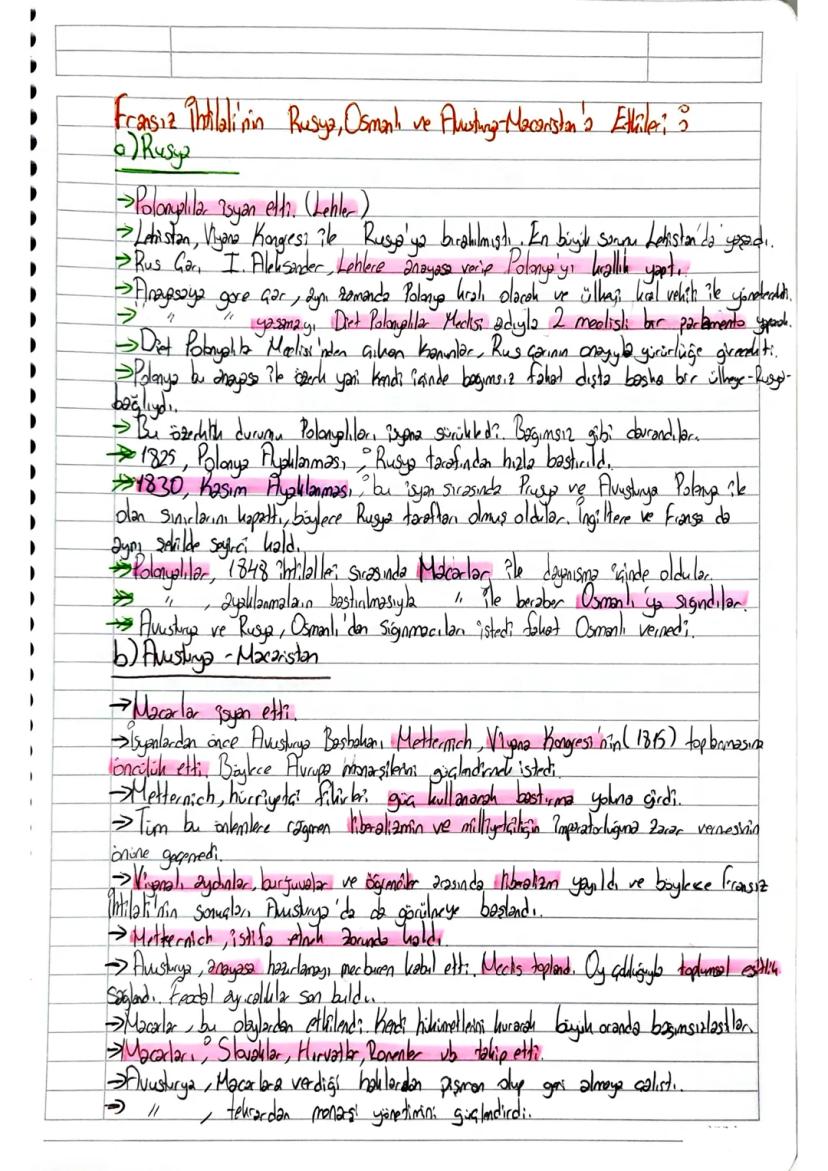 Fransız İhtilali'nin Rusya, Osmanlı ve Avusturya-Macaristan'a Etkileri :
a) Rusya
→ Polonyalılar isyan etti. (Lehler)
→ Lehistan, Viyana Kongresi ile Rusya'ya bırakılmıştı. En büyük sorunu Lehistan'da yaşadı.
→ Rus Çarı, I. Aleksander, Lehlere anayasa verip Polonya'yı krallık yaptı.
→ Anayasaya göre çar, aynı zamanda Polonya kralı olacak ve ülkeyi kral vekili ile yönetecekti.
→ " " yasamayı Diet Polonyalılar Meclisi adıyla 2 meclisli bir parlamento yapacak.
→ Diet Polonyalılar Meclisi'nden çıkan kanunlar, Rus çarının onayıyla yürürlüğe girecekti.
→ Polonya bu anayasa ile özerk yani kendi içinde bağımsız fakat dışta başka bir ülkeye-Rusya-
bağlıydı.
→ Bu özerklik durumu Polonyalıları isyana sürükledi. Bağımsız gibi davrandılar.
→ 1825, Polonya Ayaklanması ; Rusya tarafından hızla bastırıldı.
→ 1830, Kasım Ayaklanması ; bu isyan sırasında Prusya ve Avusturya Polonya ile
olan sınırlarını kapattı, böylece Rusya tarafları olmuş oldular. İngiltere ve Fransa da
aynı şekilde seyirci kaldı.
→ Polonyalılar, 1848 ihtilalleri sırasında Macarlar ile dayanışma içinde oldular.
→ " , ayaklanmaların bastırılmasıyla " ile beraber Osmanlı'ya sığındılar.
→ Avusturya ve Rusya, Osmanlı'dan sığınmacıları istedi fakat Osmanlı vermedi.
b) Avusturya - Macaristan
→ Macarlar isyan etti.
→ İsyanlardan önce Avusturya Başbakanı Metternich, Viyana Kongresi'nin (1815) toplanmasına
öncülük etti. Böylece Avrupa monarşilerini güçlendirmek istedi.
→ Metternich, hürriyetçi fikirleri güç kullanarak bastırma yoluna girdi.
→ Tüm bu önlemlere rağmen liberalizmin ve milliyetçiliğin imparatorluğuna zarar vermesinin
önüne geçemedi.
→ Viyanalı aydınlar, burjuvalar ve öğrenciler arasında liberalizm yayıldı ve böylece Fransız
İhtilali'nin sonuçları Avusturya'da da görülmeye başlandı.
→ Metternich, istifa etmek zorunda kaldı.
→ Avusturya, anayasa hazırlamayı mecburen kabul etti. Meclis toplandı. Oy çokluğuyla toplumsal eşitlik
sağlandı. Feodal ayrıcalıklar son buldu.
→ Macarlar, bu olaylardan etkilendi. Kendi hükümetlerini kurarak büyük oranda bağımsızlaştılar.
→ Macarları ; Slovaklar, Hırvatlar, Romenler vb takip etti.
→ Avusturya, Macarlara verdiği haklardan pişman olup geri almaya çalıştı.
→ " , tekrardan monarşi yönetimini güçlendirdi.